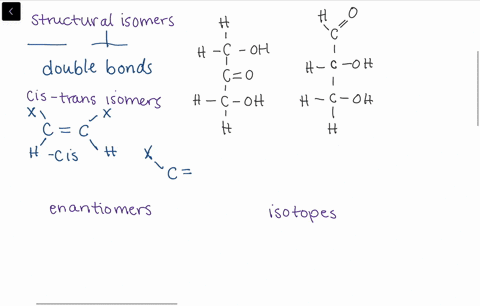 structural isomers
double bonds
cis-trans isomers
X X
C = C
H -cis H
X
C =
H
H - C - OH
C = O
H - C - OH
H
H O
C
H - C - OH
H - C - OH
H
enantiomers
isotopes